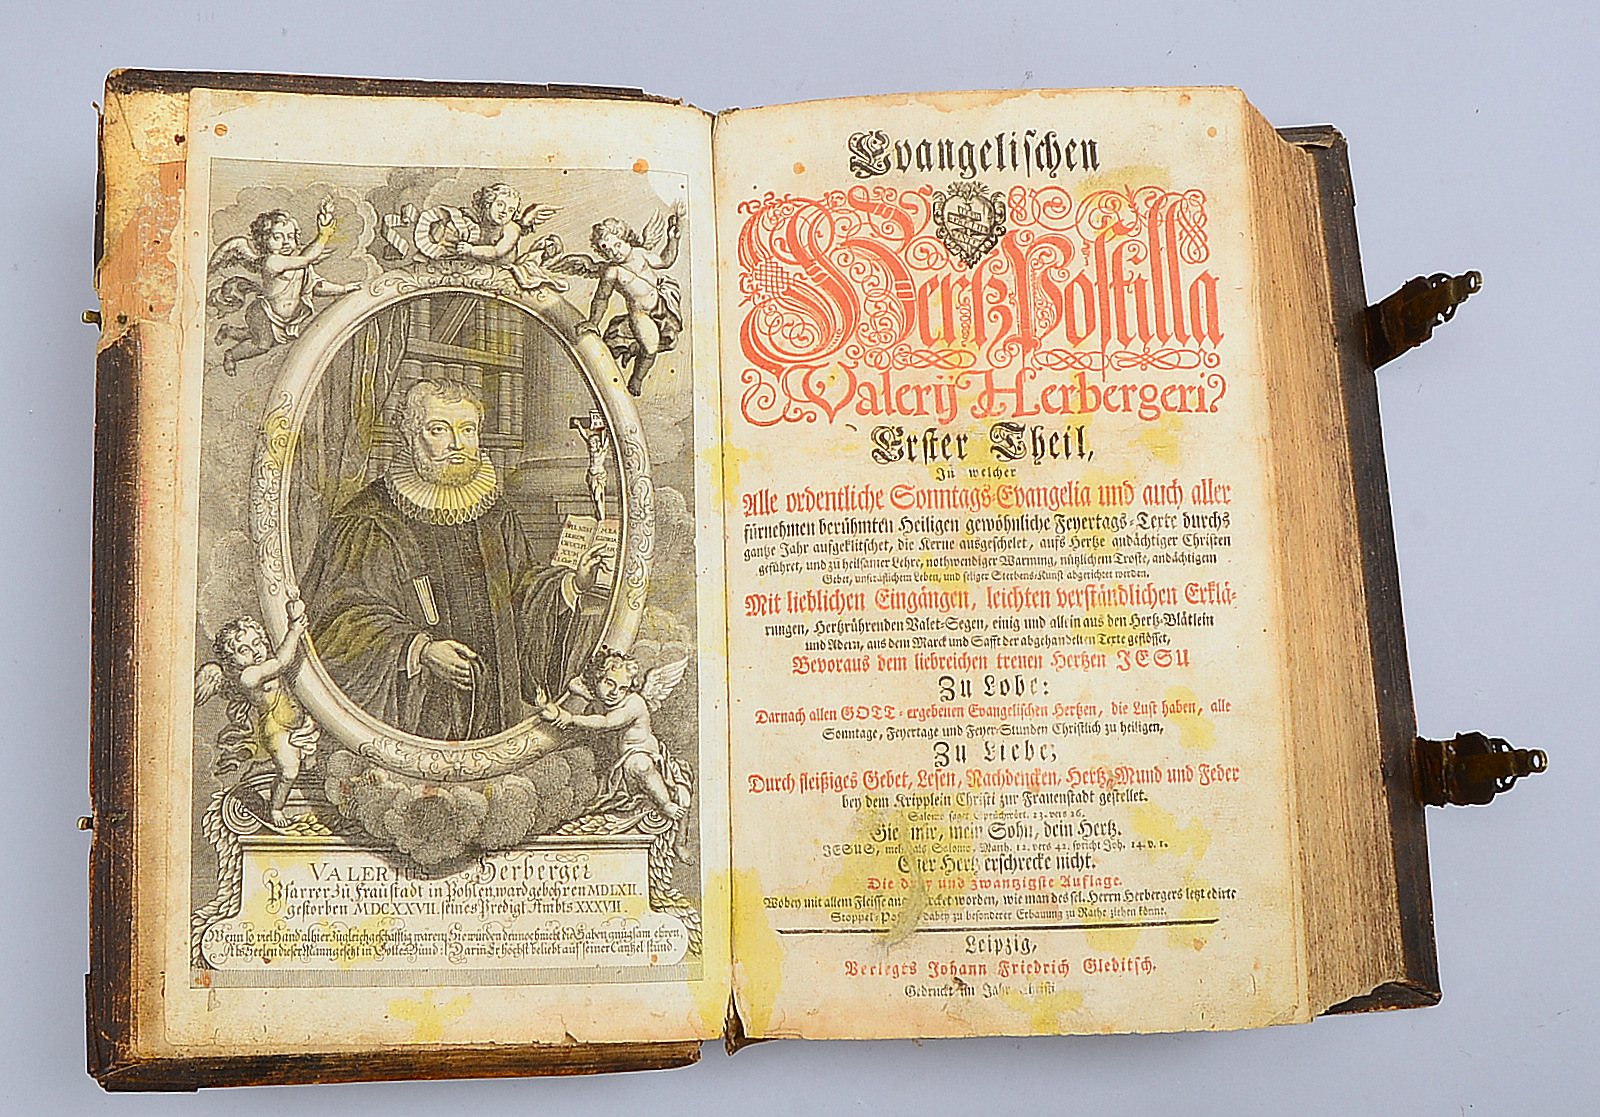 VALERIUS Herberger
Pfarrer zu Fraustadt in Pohlen, ward gebohren MDLXII.
gestorben MDCXXVII. seines Predigt Ambts XXXVII.
Wenn so viel Hand alhier zugleich geschäfftig waren: Sie würden dennoch nicht die Gaben gnugsam ehren,
dieser Mann gesetzt in Gottes Bund: Darin Er höchst beliebt auf seiner Cantzel stund.
Evangelischen
Hertz Postilla
Valerij Herbergeri
Erster Theil,
In welcher
Alle ordentliche Sonntags-Evangelia und auch aller
fürnehmen berühmten Heiligen gewöhnliche Feyertags-Texte durchs
gantze Jahr aufgeklitschet, die Kerne ausgeschelet, aufs Hertze andächtiger Christen
geführet, und zu heilsamer Lehre, nothwendiger Warnung, nützlichem Troste, andächtigem
Gebet, unsträflichem Leben, und seliger Sterbens-Kunst abgerichtet werden.
Mit lieblichen Eingängen, leichten verständlichen Erklä-
rungen, Hertzrührenden Valet-Segen, einig und allein aus den Hertz-Blätlein
und Adern, aus dem Marck und Safft der abgehandelten Texte geflösset,
Bevoraus dem liebreichen treuen Hertzen JESU
Zu Lobe:
Darnach allen GOTT-ergebenen Evangelischen Hertzen, die Lust haben, alle
Sonntage, Feyertage und Feyer-Stunden Christlich zu heiligen,
Zu Liebe;
Durch fleißiges Gebet, Lesen, Nachdencken, Hertz, Mund und Feder
bey dem Kripplein Christi zur Frauenstadt gestellet.
Salomo saget Sprüchwört. 23. vers 26.
Gie mir, mein Sohn, dein Hertz.
JESUS, mehr als Salomo, Matth. 12. vers 42. spricht Joh. 14. v. 1.
Euer Hertz erschrecke nicht.
Die drey und zwantzigste Auflage.
Wobey mit allem Fleisse angemercket worden, wie man des sel. Herrn Herbergers letzt edirte
Stoppel-Postille dabey zu besonderer Erbauung zu Rathe ziehen könnt.
Leipzig,
Verlegts Johann Friedrich Gleditsch.
Gedruckt im Jahr Christi